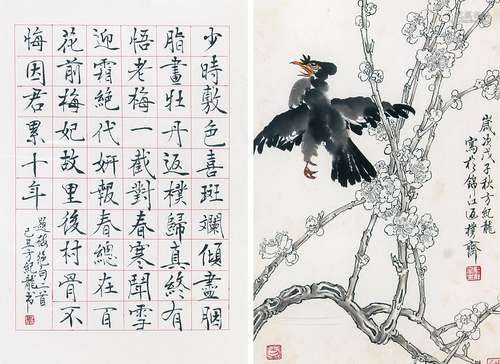 少時敷色喜斑斕傾盡胭
脂畫牡丹返樸歸真終有
悟老梅一截對春寒雪
迎霜絕代妍報春總在百
花前梅妃故里後村骨不
悔因君累十年
絕句二首
己丑方紀龍書
歲次戊子秋方紀龍
寫於錦江返樸齋